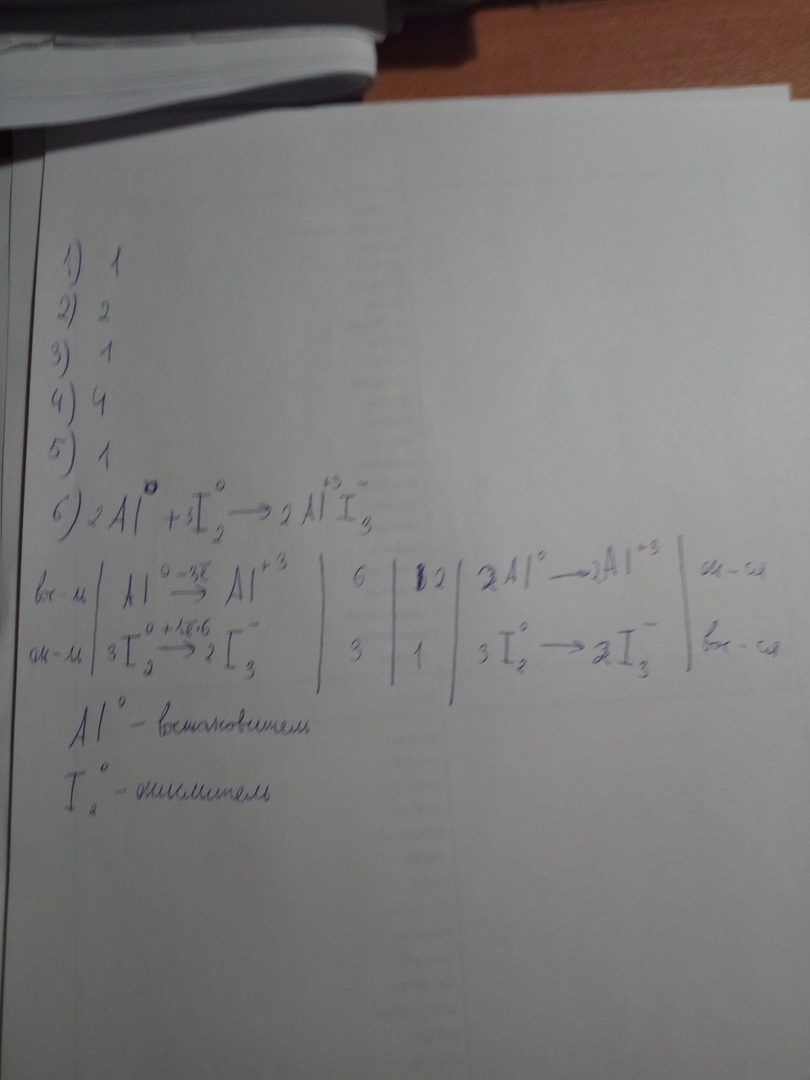 1) 1
2) 2
3) 1
4) 4
5) 1
6) 2Al⁰ + 3I₂⁰ → 2Al⁺³I₃⁻
вос-ль | Al⁰ −3ē → Al⁺³ | 6 | 2 | 2Al⁰ → 2Al⁺³ | ок-ся
ок-ль | 3I₂⁰ +1ē·6 → 2I₃⁻ | 3 | 1 | 3I₂⁰ → 2I₃⁻ | вос-ся
Al⁰ - востановитель
I₂⁰ - окислитель